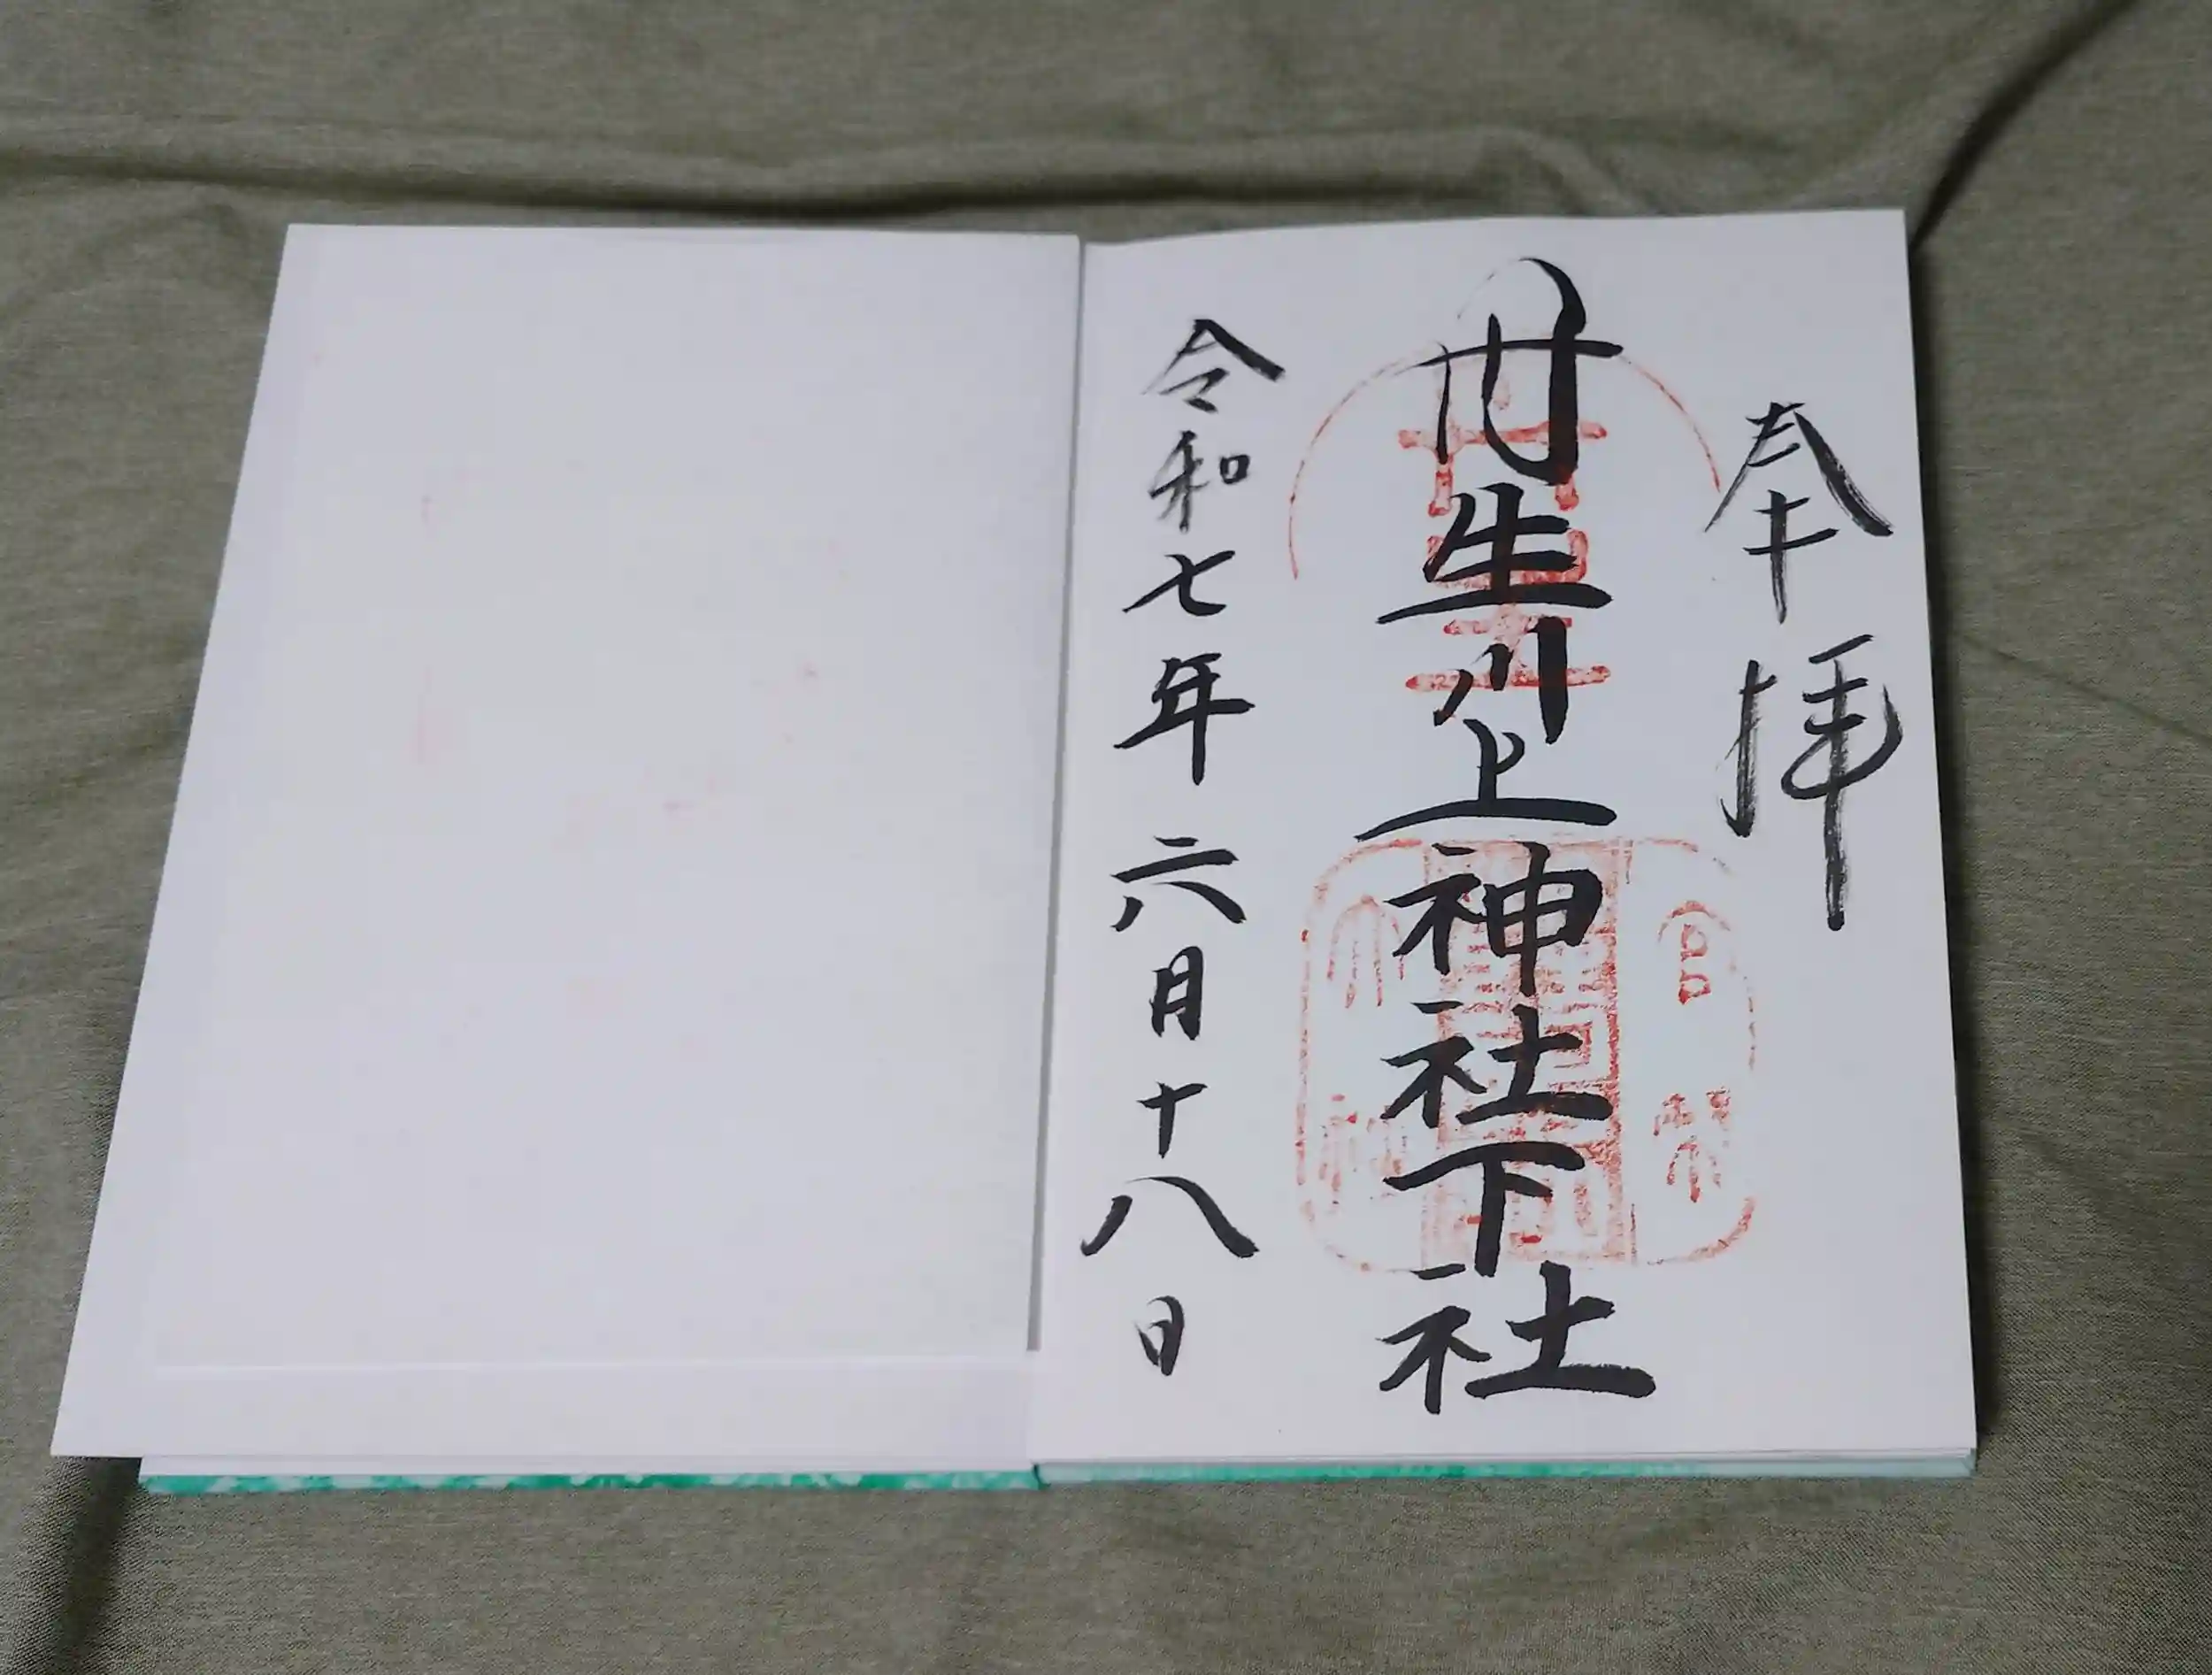 奉拝
丹生川上神社下社
令和七年六月十八日
官幣
大社